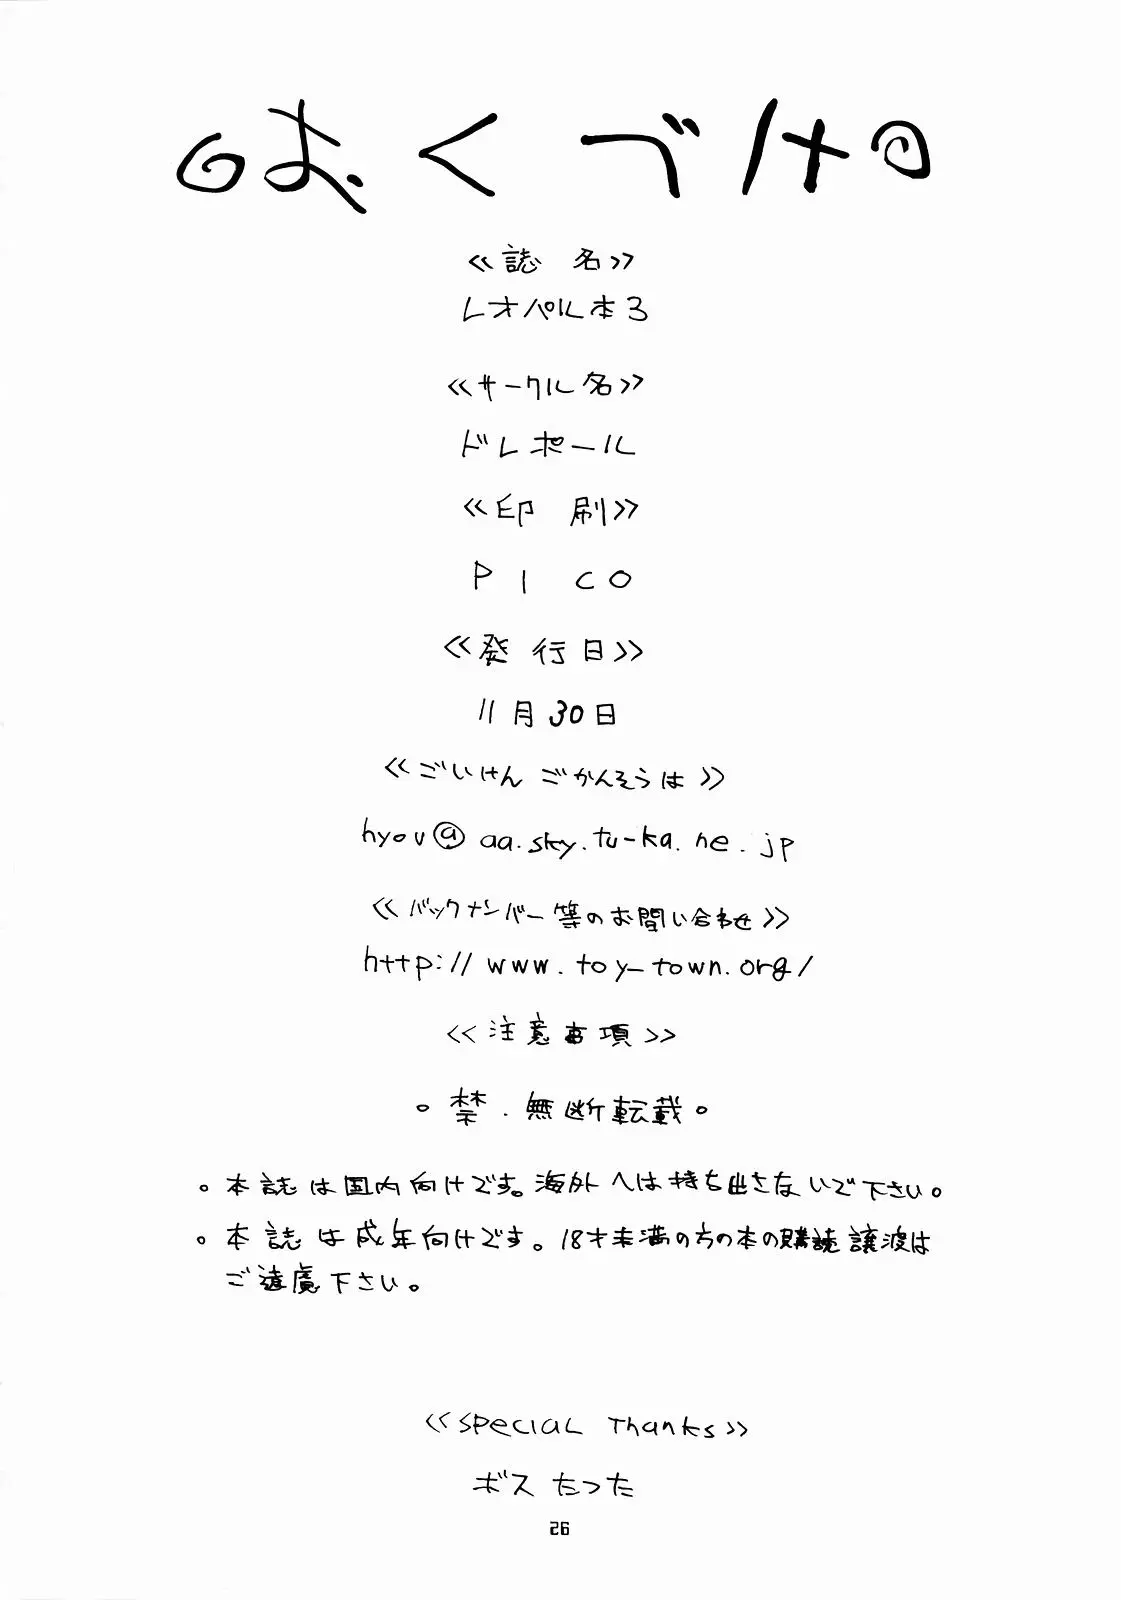 おくづけ
≪誌名≫
レオパル本3
≪サークル名≫
ドレポール
≪印刷≫
PICO
≪発行日≫
11月30日
≪ごいけん ごかんそうは≫
hyou@aa.sky.tu-ka.ne.jp
≪バックナンバー等のお問い合わせ≫
http://www.toy-town.org/
≪注意事項≫
。禁・無断転載。
。本誌は国内向けです。海外へは持ち出さないで下さい。
。本誌は成年向けです。18才未満の方の本の購読譲渡は
ご遠慮下さい。
≪SPECIAL Thanks≫
ボス たつた
26